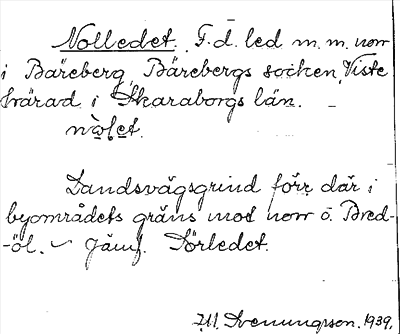 Nolledet. F.d. led m.m. norr
i Bäreberg, Bärebergs socken, Viste
härad i Skaraborgs län.
nòlet.
Landsvägsgrind förr där i
byområdets gräns mot norr o. Bred-
-öl. Jämf. Sörledet.
Svenungsson. 1939.